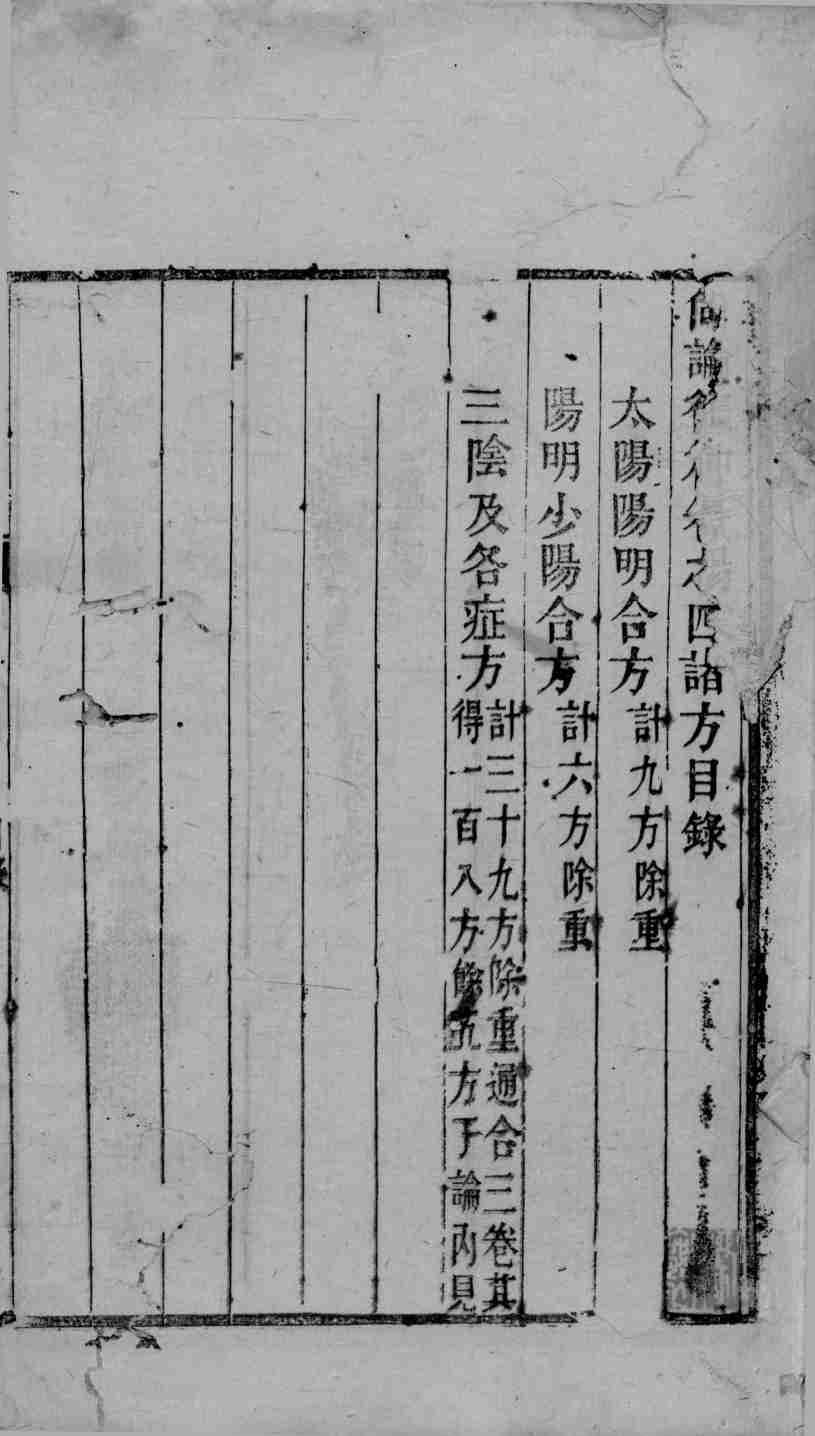 尚論後篇卷之四諸方目錄
太陽陽明合方計九方除重
陽明少陽合方計六方除重
三陰及各症方計三十九方除重通合三卷其
得一百八方餘五方于論內見